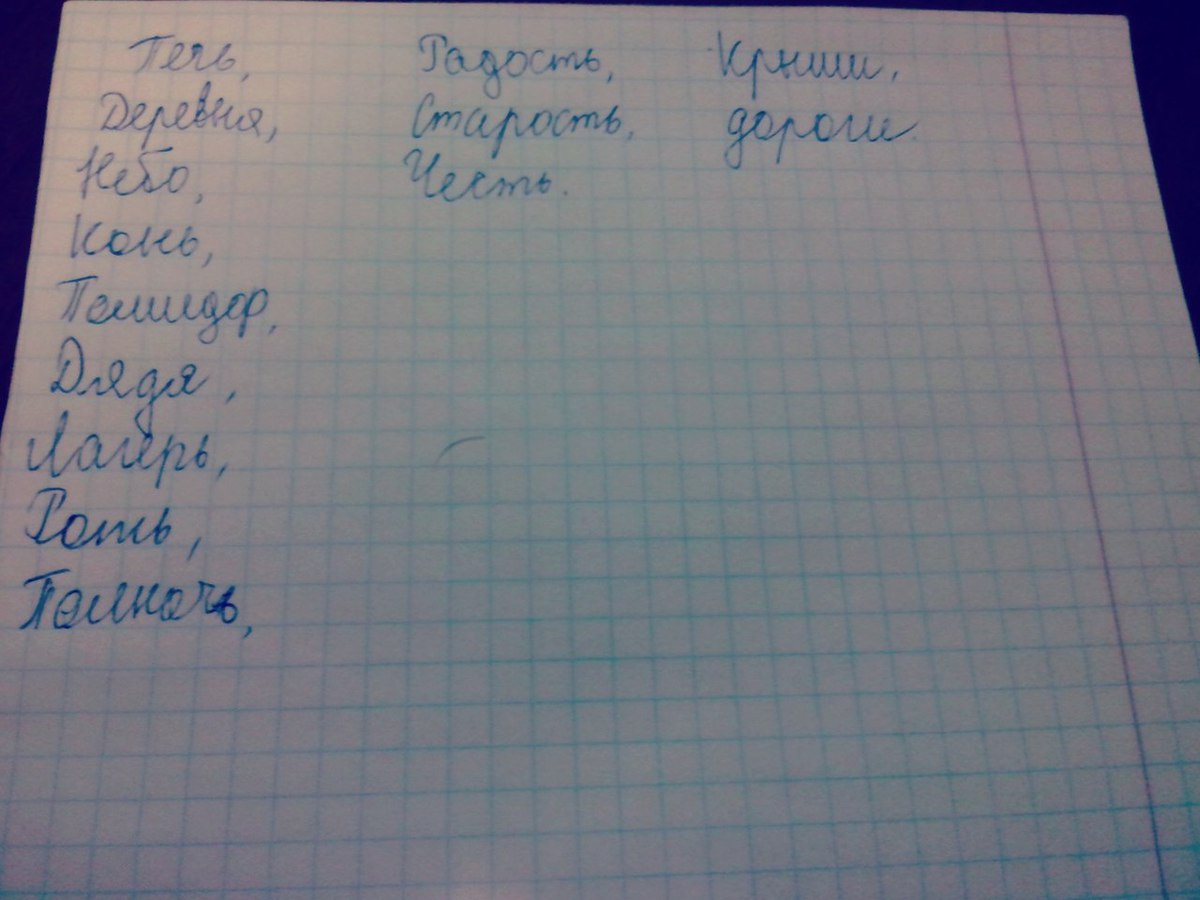 Печь,
Деревня,
Небо,
Конь,
Помидор,
Дядя,
Лагерь,
Рать,
Полночь,
Радость,
Старость,
Честь.
Крыши,
дороги.